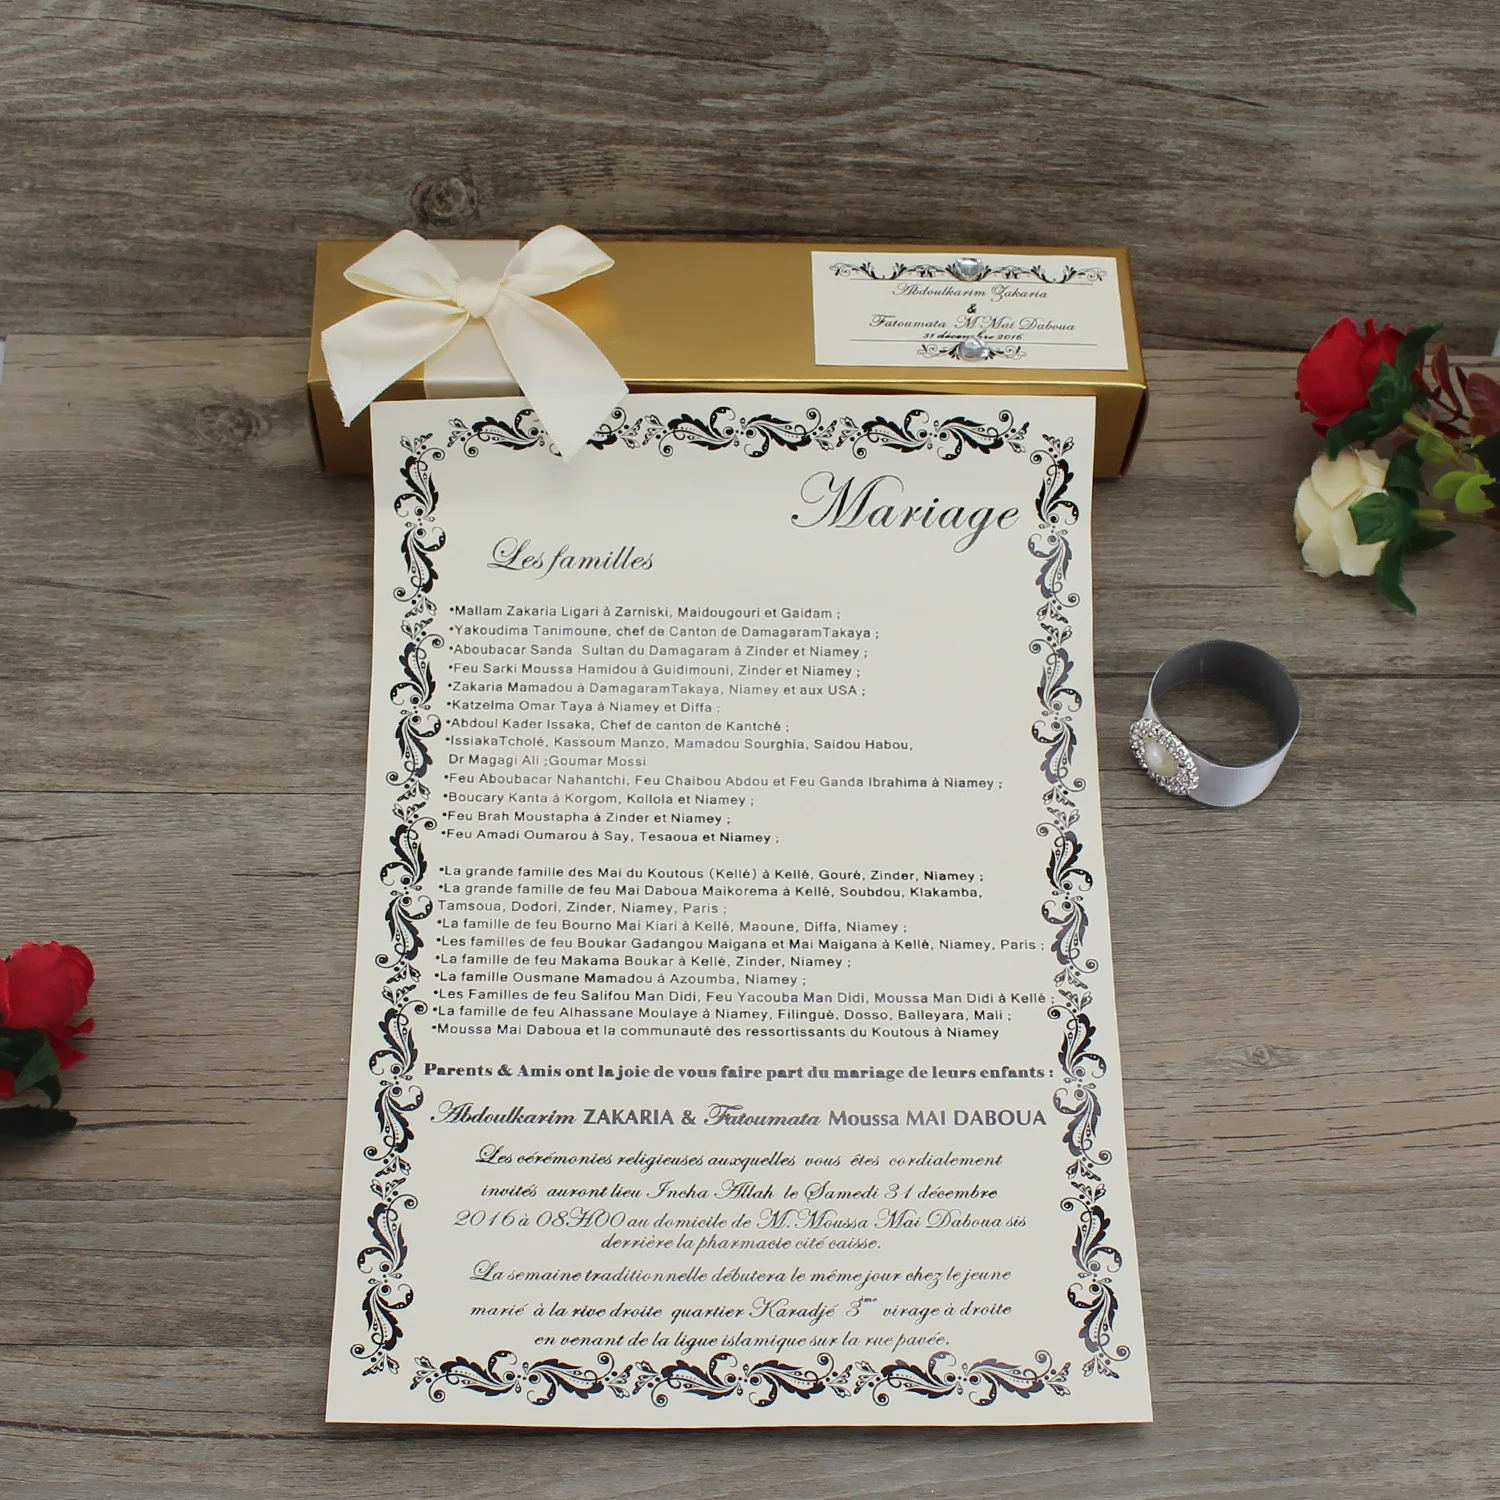 Abdoulkarim Zakaria
&
Fatoumata M Mai Daboua
31 décembre 2016
Mariage
Les familles
•Mallam Zakaria Ligari à Zarniski, Maidougouri et Gaidam ;
•Yakoudima Tanimoune, chef de Canton de DamagaramTakaya ;
•Aboubacar Sanda Sultan du Damagaram à Zinder et Niamey ;
•Feu Sarki Moussa Hamidou à Guidimouni, Zinder et Niamey ;
•Zakaria Mamadou à DamagaramTakaya, Niamey et aux USA ;
•Katzelma Omar Taya à Niamey et Diffa ;
•Abdoul Kader Issaka, Chef de canton de Kantché ;
•IssiakaTcholé, Kassoum Manzo, Mamadou Sourghia, Saidou Habou,
Dr Magagi Ali ;Goumar Mossi
•Feu Aboubacar Nahantchi, Feu Chaibou Abdou et Feu Ganda Ibrahima à Niamey ;
•Boucary Kanta à Korgom, Kollola et Niamey ;
•Feu Brah Moustapha à Zinder et Niamey ;
•Feu Amadi Oumarou à Say, Tesaoua et Niamey ;
•La grande famille des Mai du Koutous (Kellé) à Kellé, Gouré, Zinder, Niamey ;
•La grande famille de feu Mai Daboua Maikorema à Kellé, Soubdou, Klakamba,
Tamsoua, Dodori, Zinder, Niamey, Paris ;
•La famille de feu Bourno Mai Kiari à Kellé, Maoune, Diffa, Niamey ;
•Les familles de feu Boukar Gadangou Maigana et Mai Maigana à Kellé, Niamey, Paris ;
•La famille de feu Makama Boukar à Kellé, Zinder, Niamey ;
•La famille Ousmane Mamadou à Azoumba, Niamey ;
•Les Familles de feu Salifou Man Didi, Feu Yacouba Man Didi, Moussa Man Didi à Kellé ;
•La famille de feu Alhassane Moulaye à Niamey, Filingué, Dosso, Balleyara, Mali ;
•Moussa Mai Daboua et la communauté des ressortissants du Koutous à Niamey
Parents & Amis ont la joie de vous faire part du mariage de leurs enfants :
Abdoulkarim ZAKARIA & Fatoumata Moussa MAI DABOUA
Les cérémonies religieuses auxquelles vous êtes cordialement
invités auront lieu Incha Allah le Samedi 31 décembre
2016 à 08H00 au domicile de M. Moussa Mai Daboua sis
derrière la pharmacie cité caisse.
La semaine traditionnelle débutera le même jour chez le jeune
marié à la rive droite quartier Karadjé 3ème virage à droite
en venant de la ligue islamique sur la rue pavée.